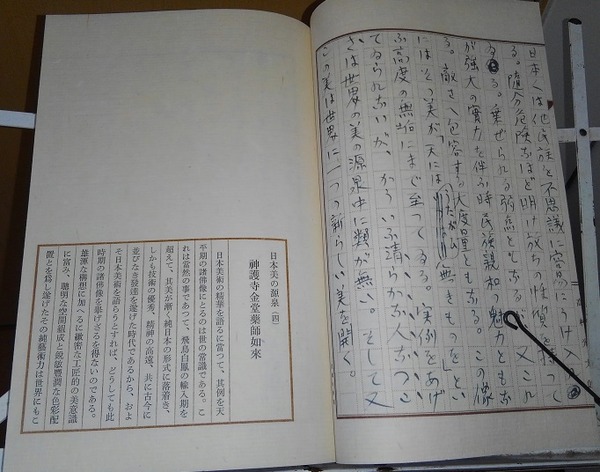 日本人は他民族を不思議に容易にうけ入
る。隨分危険なほど明け放ちの性質を持つて
ゐる。乗ぜられる弱点ともなるが又これ
が強大の實力を伴ふ時民族親和の魅力ともな
る。敵さへ包容する大度量ともなる。この像
にはその美が「天にはうたがひ無きものを」とい
ふ高度の無垢にまで至つてゐる。実例をあげ
てゐられないが、かういふ清らかな人なつこ
さは世界の美の源泉中に類が無い。そして又
この美は世界に一つの新らしい美を開く。
日本美の源泉（四）
神護寺金堂藥師如來
日本美術の精華を語るに當つて、其例を天
平期の諸佛像にとるのは世の常識である。こ
れは當然の事であつて、飛鳥白鳳の輸入期を
超えて、其美が漸く純日本の形式に落着き、
しかも技術の優秀、精神の高遠、共に古今に
並びなき發達を遂げた時代であるから、およ
そ日本美術を語らうとすれば、どうしても此
時期の諸佛像を擧げざるを得ないのである。
雄渾な構想に加へるに緻密な工匠的の美意識
に富み、聰明な空間組成と鋭敏豐潤な色彩配
置とを爲し遂げたその純藝術力は世界にもこ